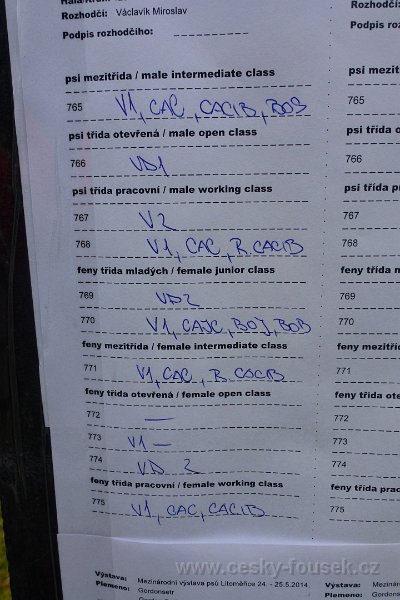 Rozhodčí: Václavík Miroslav
Rozhodčí:
Podpis rozhodčího:
Podpis
psi mezitřída / male intermediate class
psi mezit
765 V1, CAC, CACIB, BOS
765
psi třída otevřená / male open class
psi třída o
766 VD1
766
psi třída pracovní / male working class
psi třída p
767 V2
767
768 V1, CAC, R. CACIB
768
feny třída mladých / female junior class
feny třída m
769 VD2
769
770 V1, CAJC, BOJ, BOB
770
feny mezitřída / female intermediate class
feny mezitříd
771 V1, CAC, R. CACIB
771
feny třída otevřená / female open class
feny třída ote
772 —
772
773 V1 —
773
774 VD 2
774
feny třída pracovní / female working class
feny třída prac
775 V1, CAC, CACIB
775
www.cesky-fousek.cz
Výstava: Mezinárodní výstava psů Litoměřice 24. - 25.5.2014
Výstava: Mezinár
Plemeno: Gordonsetr
Plemeno: Gordons